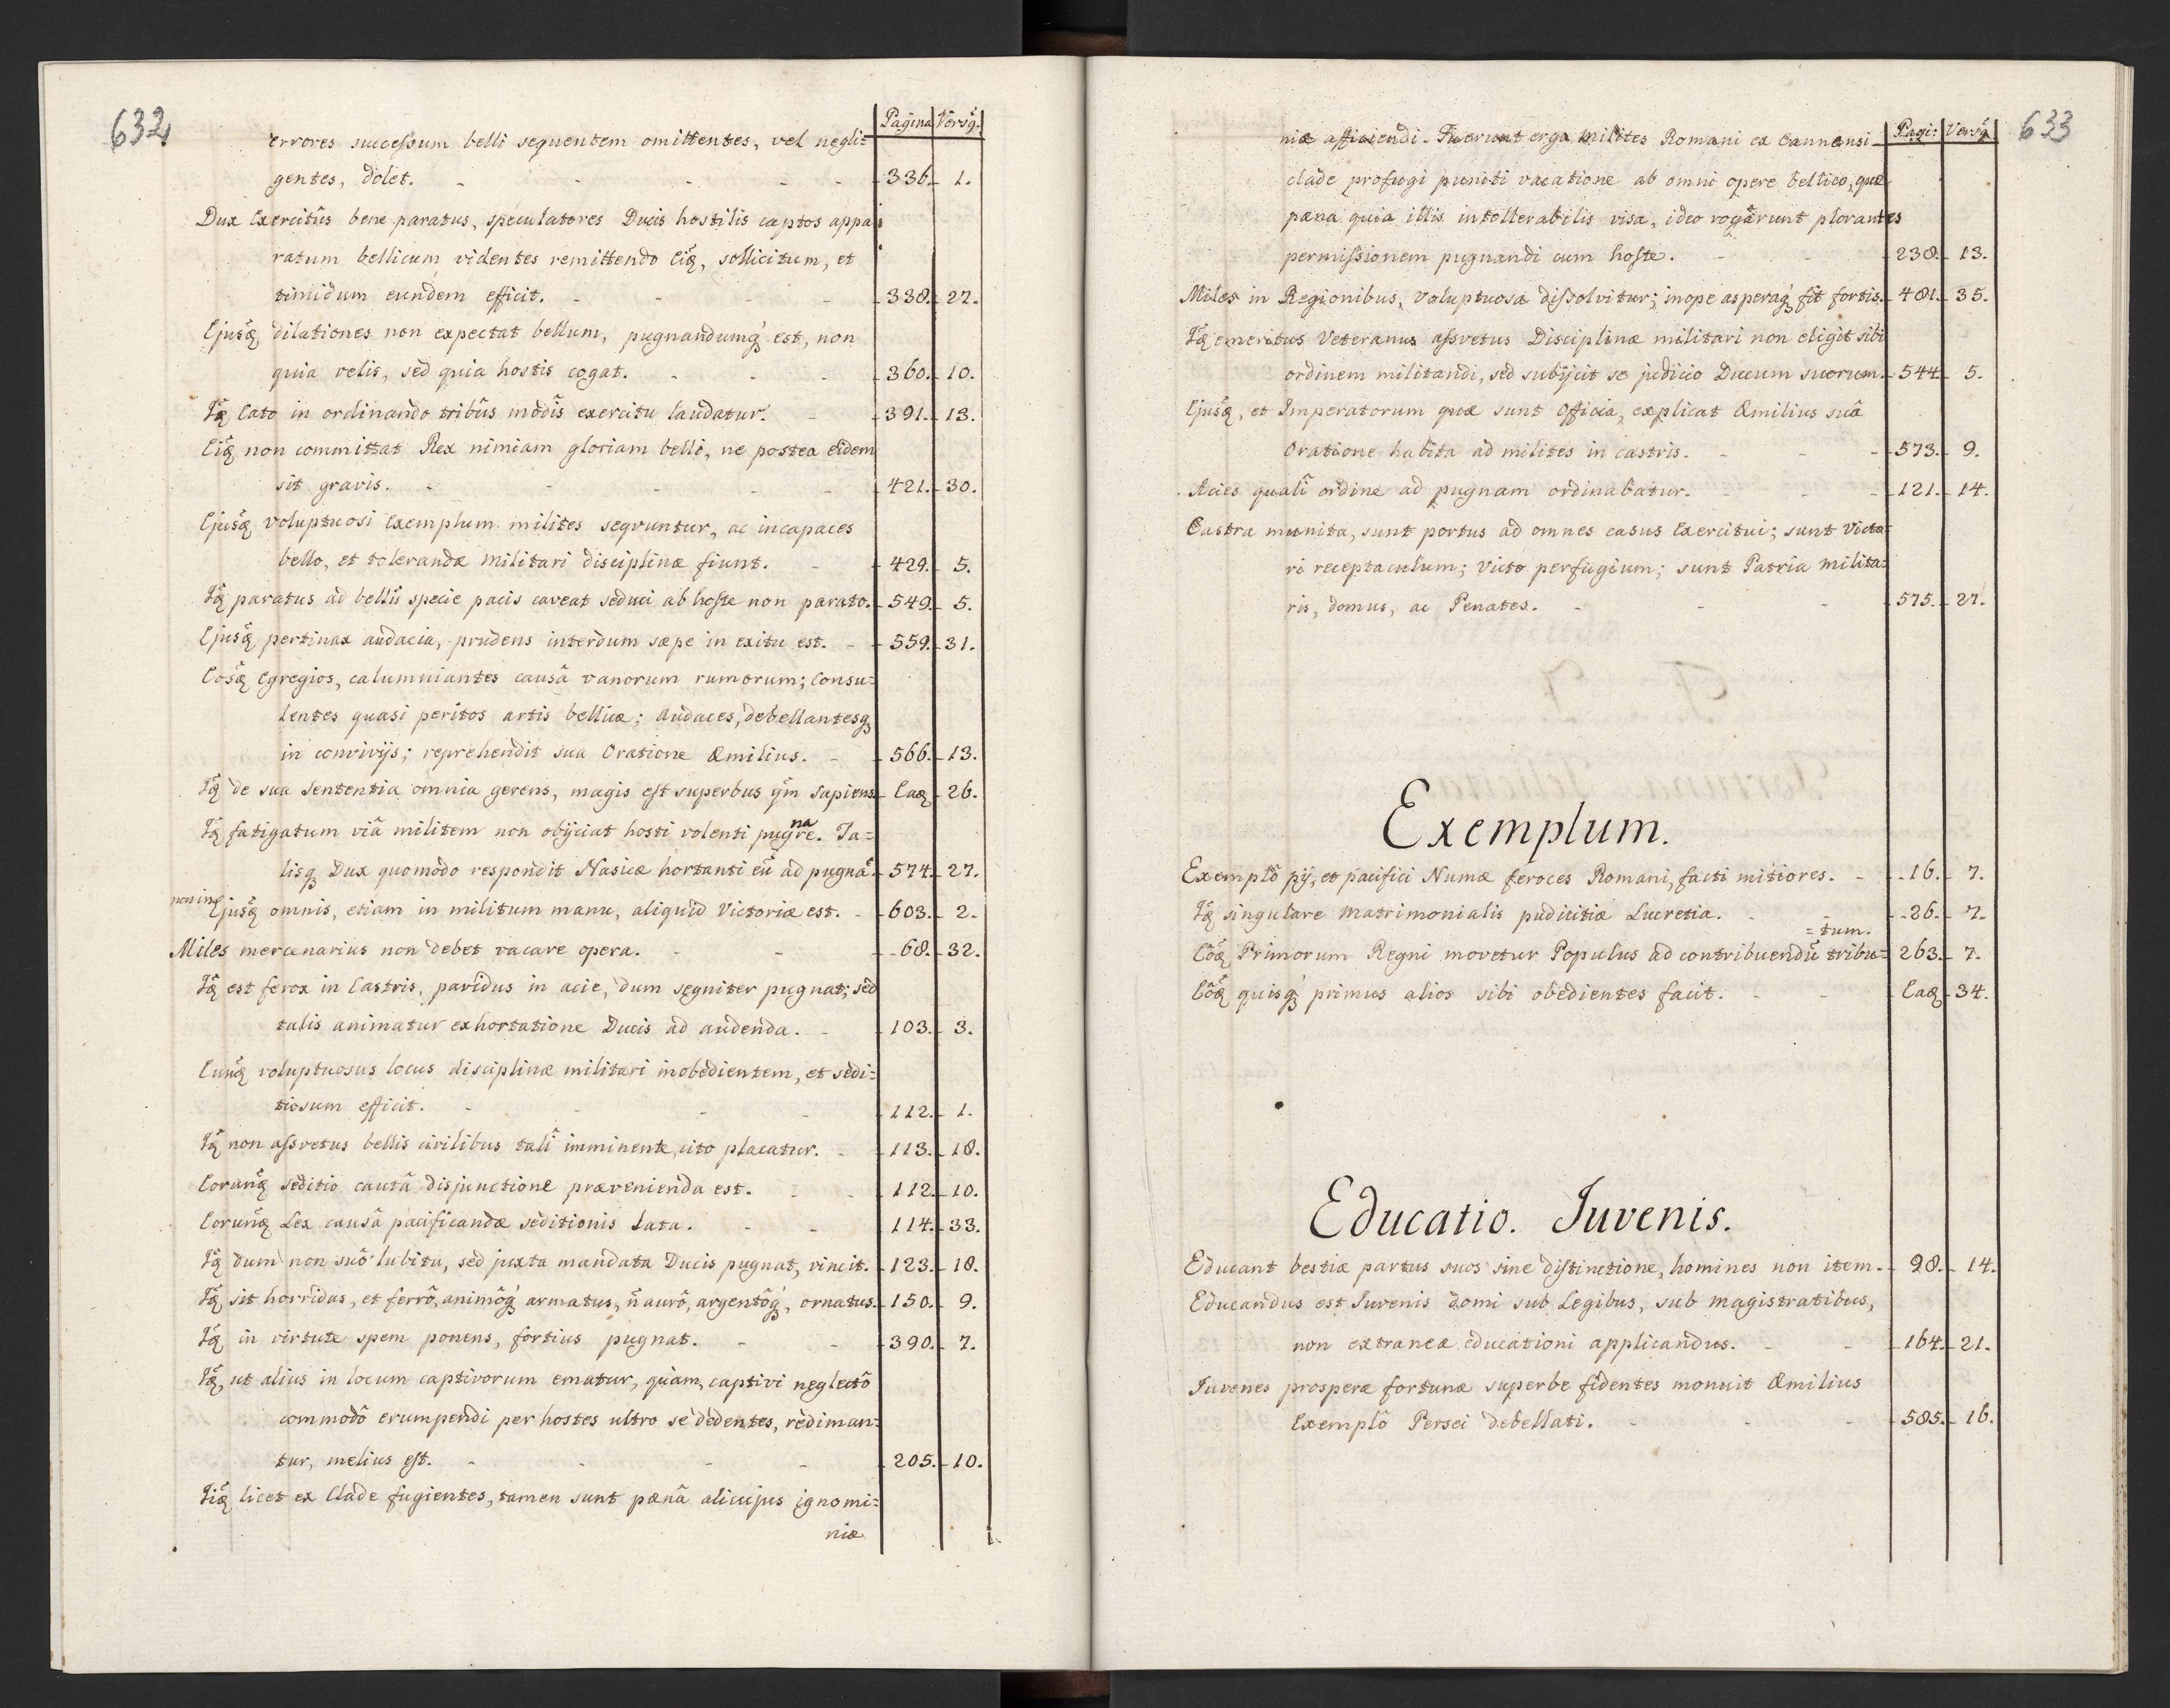 632
Pagina Versꝯ.
errores succeſsum belli sequentem omittentes, vel negli=
gentes, dolet. - - - - - 336. 1.
Dux Exercitûs bene paratus, speculatores Ducis hostilis captos appa
ratum bellicum videntes remittendo Eiꝗ, sollicitum, et
timidum eundem efficit. - - - - 338. 27.
Ejusꝗ dilationes non expectat bellum, pugnandumqꝫ est, non
quia velis, sed quia hostis cogat. - - - 360. 10.
Iꝗ Cato in ordinando tribûs modîs exercitu laudatur. - 391. 13.
Eiꝗ non committat Rex nimiam gloriam belli, ne postea eidem
sit gravis. - - - - - 421. 30.
Ejusꝗ voluptuosi Exemplum milites sequuntur, ac incapaces
bello, et tolerandæ militari disciplinæ fiunt. - 429. 5.
Iꝗ paratus ad bellũ specie pacis caveat seduci ab hoſte non parato. 549. 5.
Ejusꝗ pertinax audacia, prudens interdum sæpe in exitu est. - 559. 31.
Eosꝗ Egregios, calumniantes causâ vanorum rumorum; Consu=
lentes quasi peritos artis bellicæ; audaces, debellantesqꝫ
in convivijs; reprehendit sua Oratione Æmilius. - 566. 13.
Iꝗ de sua Sententia omnia gerens, magis eſt superbus qm̃ Sapiens. Eaꝗ 26.
Iꝗ fatigatum viâ militem non obijciat hosti volenti pugnare. Ta=
lisqꝫ Dux quomodo respondit Nasicæ hortanti eũ ad pugnã. 574. 27.
Ejusꝗ omnis, etiam in militum manu, aliquid Victoriæ est. - 603. 2.
Miles mercenarius non debet vacare opera. - - 68. 32.
Iꝗ est ferox in Castris, pavidus in acie, dum segniter pugnat; sed
talis animatur exhortatione Ducis ad audenda. - 103. 3.
Eunꝗ voluptuosus locus disciplinæ militari inobedientem, et sedi=
tiosum efficit. - - - - 112. 1.
Iꝗ non aſsvetus bellis civilibus talî imminente, cito placatur. - 113. 18.
Eorunꝗ seditio cautâ disjunctione prævenienda est. - - 112. 10.
Eorunꝗ Lex causâ pacificandæ seditionis Lata. - - 114. 33.
Iꝗ dum non suô lubitu, sed juxta mandata Ducis pugnat, vincit. 123. 18.
Iꝗ sit horridus, et ferrô, animôqꝫ armatus, ñ aurô, argentôqꝫ, ornatus. 150. 9.
Iꝗ in virtute spem ponens, fortius pugnat. - - 390. 7.
Iꝗ, ut alius in locum captivorum ematur, quàm, captivi neglectô
commodô erumpendi per hostes ultro se dedentes, rediman=
tur, melius eſt. - - - - 205. 10.
Iiꝗ licet ex Clade fugientes, tamen sunt pænâ alicujus ignomi=
niæ
633
Pagi: Versꝯ
niæ afficiendi. Fuerunt erga milites Romani ex Cannensi
clade profugi puniti vacatione ab omni opere bellico, quæ
pæna quia illis intollerabilis visa, ideo rogârunt plorantes
permiſsionem pugnandi cum hoſte. - - 238. 13.
Miles in Regionibus, voluptuosa diſsolvitur; inope asperaqꝫ fit fortis. 481. 35.
Iꝗ emeritus Veteranus aſsvetus Disciplinæ militari non eligit sibi
ordinem militandi, sed subijcit se judicio Ducum suorum. 544. 5.
Ejusꝗ, et Imperatorum quæ sunt Officia, explicat Æmilius suâ
Oratione habita ad milites in castris. - - - 573. 9.
Acies qualî ordine ad pugnam ordinabatur. - - 121. 14.
Castra munita, sunt portus ad omnes casus Exercitui; sunt Victo=
ri receptaculum; Victo perfugium; sunt Patria milita=
ris, domus, ac Penates. - - - 575. 27.
Exemplum.
Exemplô pij, et pacifici Numæ feroces Romani, facti mitiores. - 16. 7.
Iꝗ singulare matrimonialis pudicitiæ Lucretia. - - 26. 7.
=tum.
Eôꝗ Primorum Regni movetur Populus ad contribuendũ tribu= 263. 7.
Eôꝗ quisqꝫ primus alios sibi obedientes facit. - - Eaꝗ 34.
Educatio. Juvenis.
Educant bestiæ partus suos sine diſtinctione, homines non item. - 98. 14.
Educandus est Juvenis domi sub Legibus, sub magistratibus,
non extraneæ educationi applicandus. - - 164. 21.
Juvenes prosperæ fortunæ superbe fidentes monuit Æmilius
Exemplô Persei debellati. - - - 585. 16.